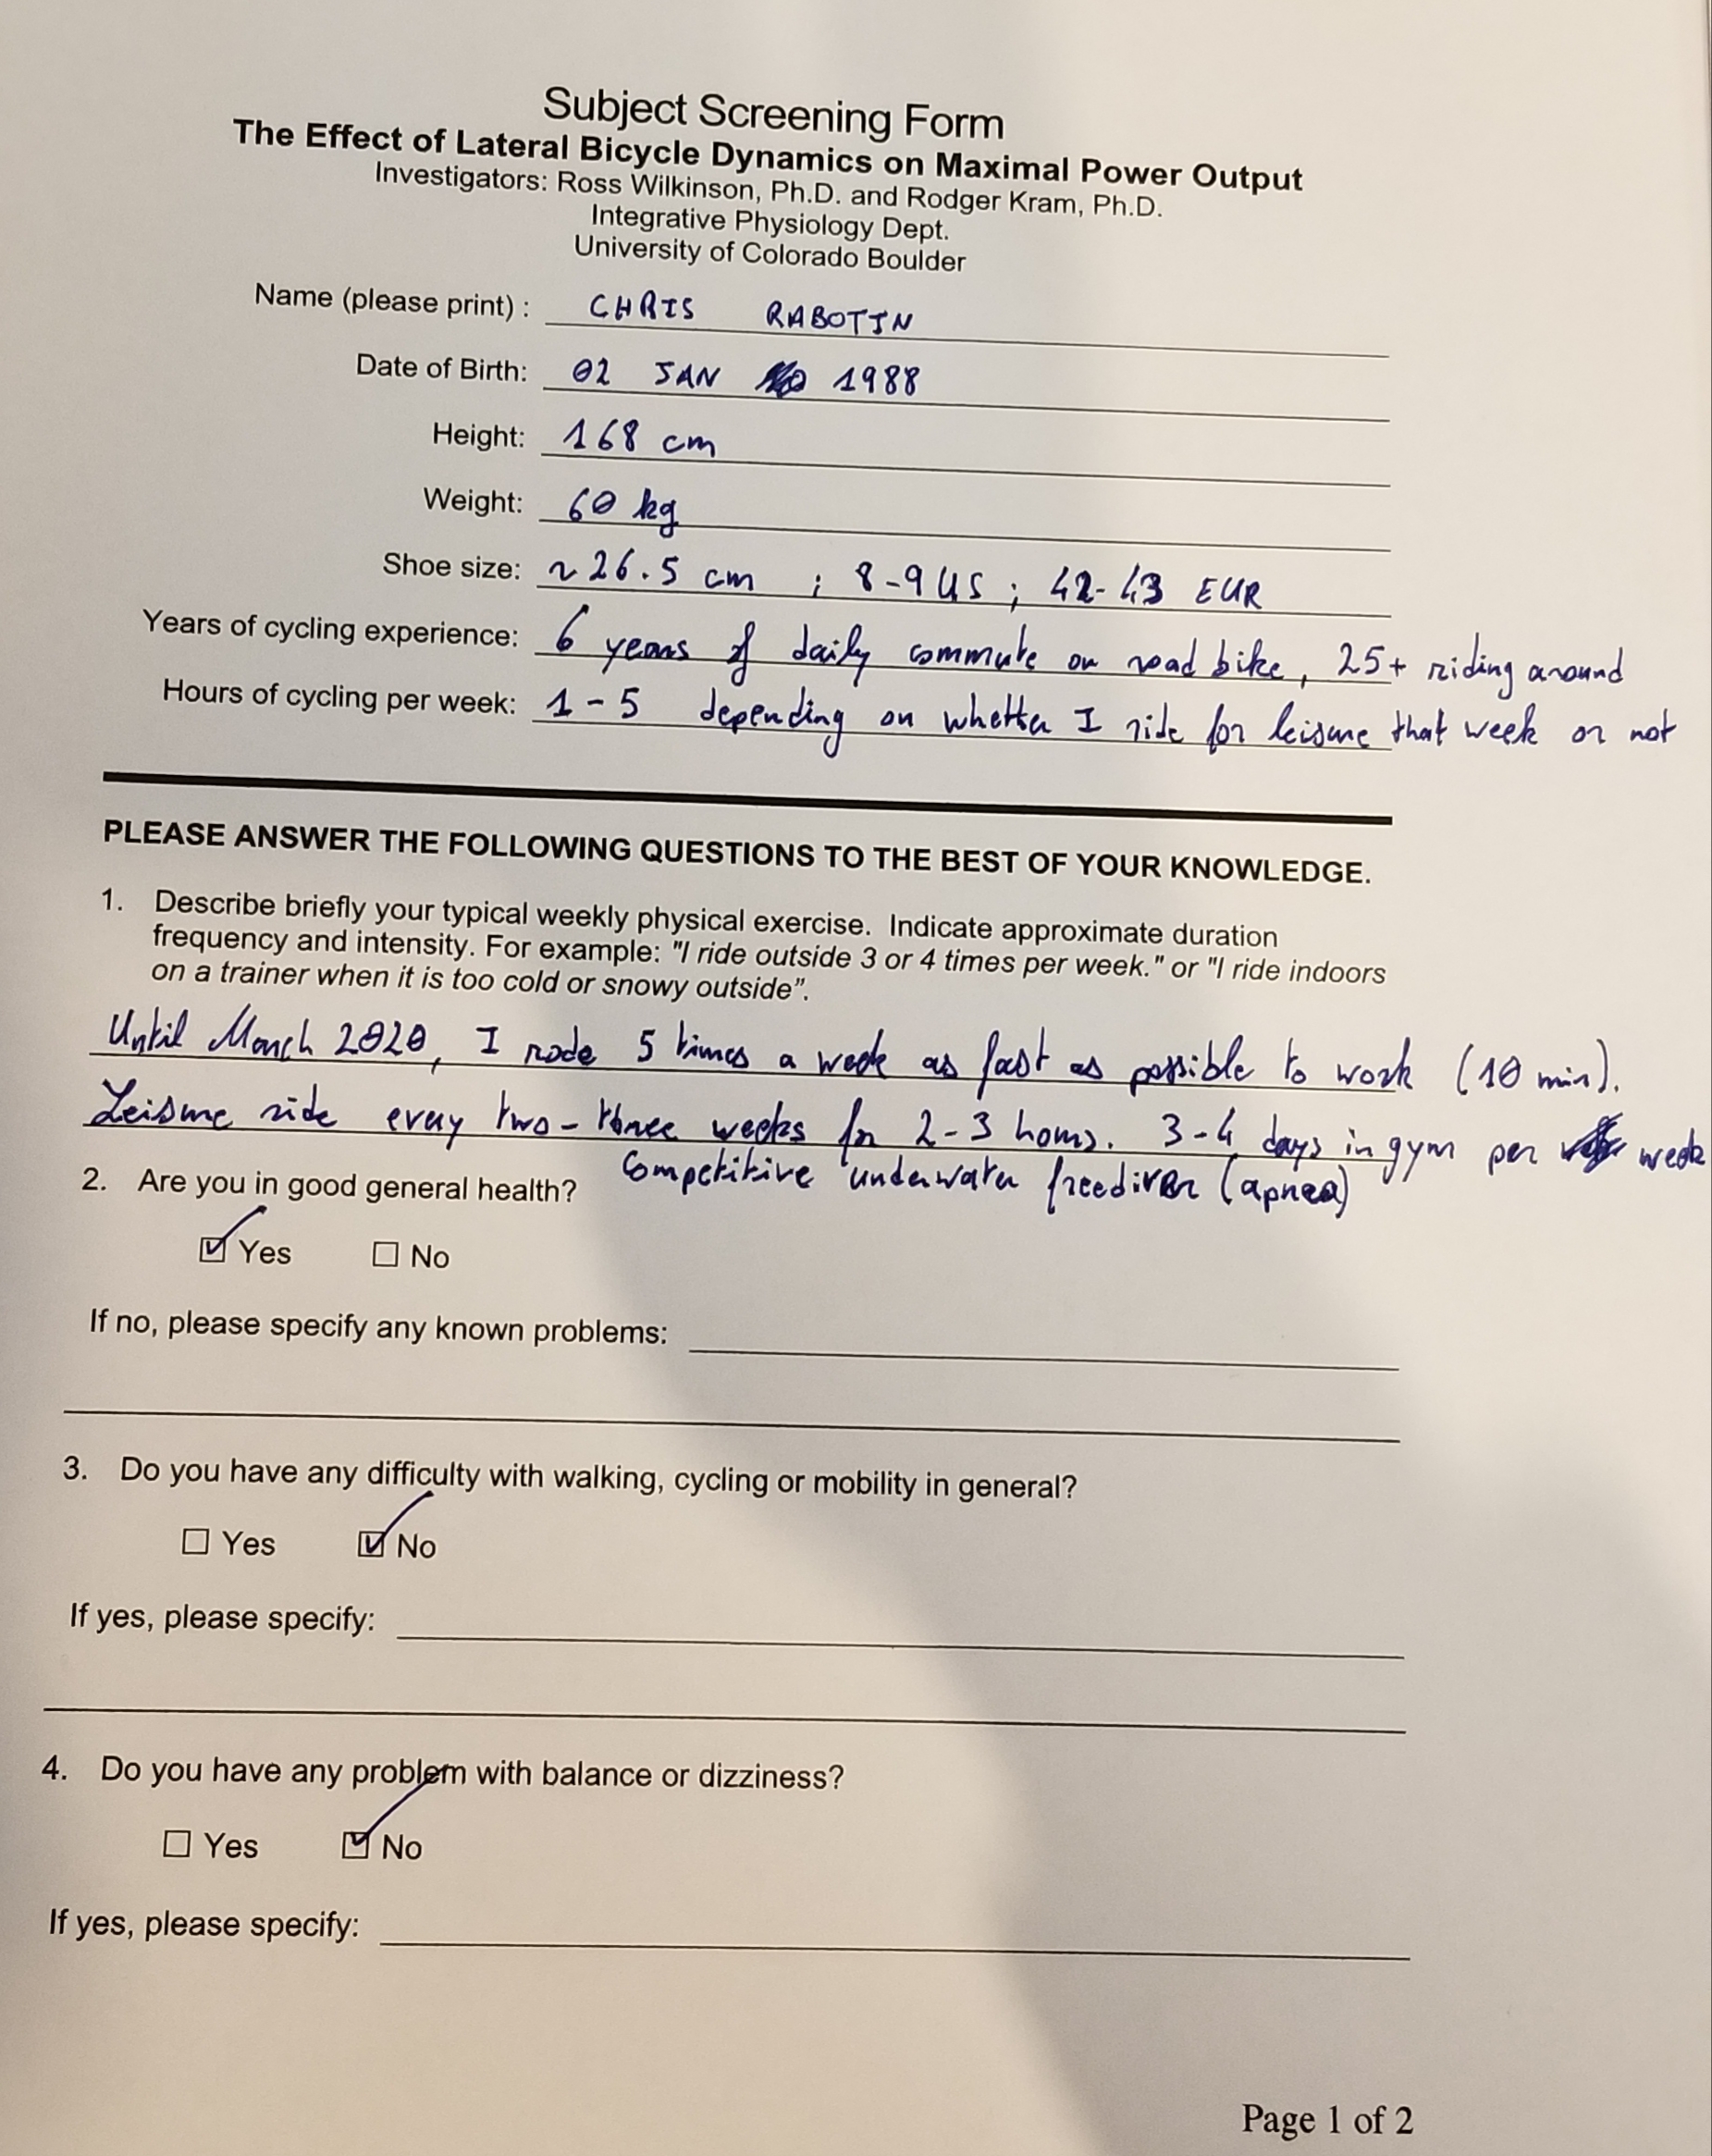 Subject Screening Form
The Effect of Lateral Bicycle Dynamics on Maximal Power Output
Investigators: Ross Wilkinson, Ph.D. and Rodger Kram, Ph.D.
Integrative Physiology Dept.
University of Colorado Boulder
Name (please print) : CHRIS RABOTIN
Date of Birth: 02 JAN 1988
Height: 168 cm
Weight: 60 kg
Shoe size: ~26.5 cm ; 8-9 US ; 42-43 EUR
Years of cycling experience: 6 years of daily commute on road bike, 25+ riding around
Hours of cycling per week: 1-5 depending on whether I ride for leisure that week or not
PLEASE ANSWER THE FOLLOWING QUESTIONS TO THE BEST OF YOUR KNOWLEDGE.
1. Describe briefly your typical weekly physical exercise. Indicate approximate duration
frequency and intensity. For example: "I ride outside 3 or 4 times per week." or "I ride indoors
on a trainer when it is too cold or snowy outside”.
Until March 2020, I rode 5 times a week as fast as possible to work (10 min).
Leisure ride every two-three weeks for 2-3 hours. 3-4 days in gym per week
Competitive underwater freediver (apnea)
2. Are you in good general health?
☑ Yes ☐ No
If no, please specify any known problems:
3. Do you have any difficulty with walking, cycling or mobility in general?
☐ Yes ☑ No
If yes, please specify:
4. Do you have any problem with balance or dizziness?
☐ Yes ☑ No
If yes, please specify:
Page 1 of 2